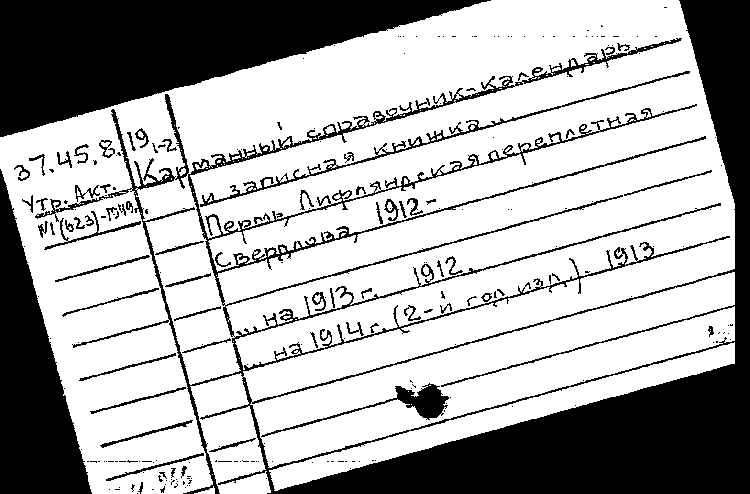 37.45.8.19 1-2
Утр. Акт.
№1(623)-1949г.
Карманный справочник-календарь
и записная книжка ...
Пермь, Лифляндская переплетная
Свердлова, 1912-
... на 1913 г. 1912.
... на 1914 г. (2-й год изд.). 1913